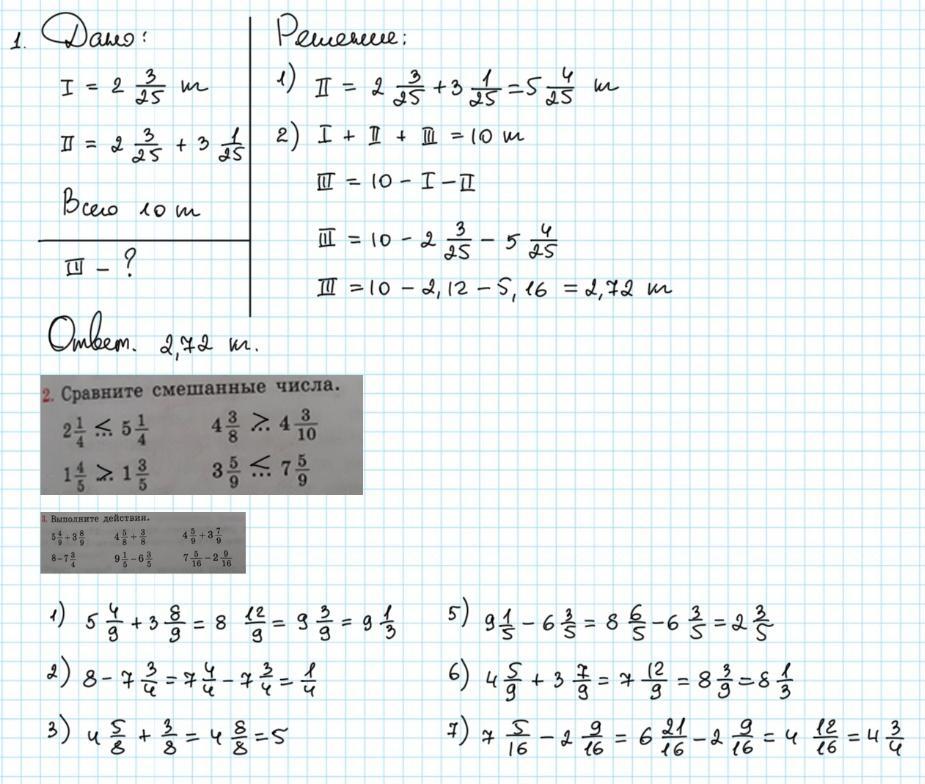 1. Дано:
I = 2 3/25 т
II = 2 3/25 + 3 1/25
Всего 10 т
III - ?
Решение:
1) II = 2 3/25 + 3 1/25 = 5 4/25 т
2) I + II + III = 10 т
III = 10 - I - II
III = 10 - 2 3/25 - 5 4/25
III = 10 - 2,12 - 5,16 = 2,72 т
Ответ. 2,72 т.
2. Сравните смешанные числа.
2 1/4 <... 5 1/4 4 3/8 >... 4 3/10
1 4/5 >... 1 3/5 3 5/9 <... 7 5/9
3. Выполните действия.
5 4/9 + 3 8/9 4 5/8 + 3/8 4 5/9 + 3 7/9
8 - 7 3/4 9 1/5 - 6 3/5 7 5/16 - 2 9/16
1) 5 4/9 + 3 8/9 = 8 12/9 = 9 3/9 = 9 1/3
2) 8 - 7 3/4 = 7 4/4 - 7 3/4 = 1/4
3) 4 5/8 + 3/8 = 4 8/8 = 5
5) 9 1/5 - 6 3/5 = 8 6/5 - 6 3/5 = 2 3/5
6) 4 5/9 + 3 7/9 = 7 12/9 = 8 3/9 = 8 1/3
7) 7 5/16 - 2 9/16 = 6 21/16 - 2 9/16 = 4 12/16 = 4 3/4